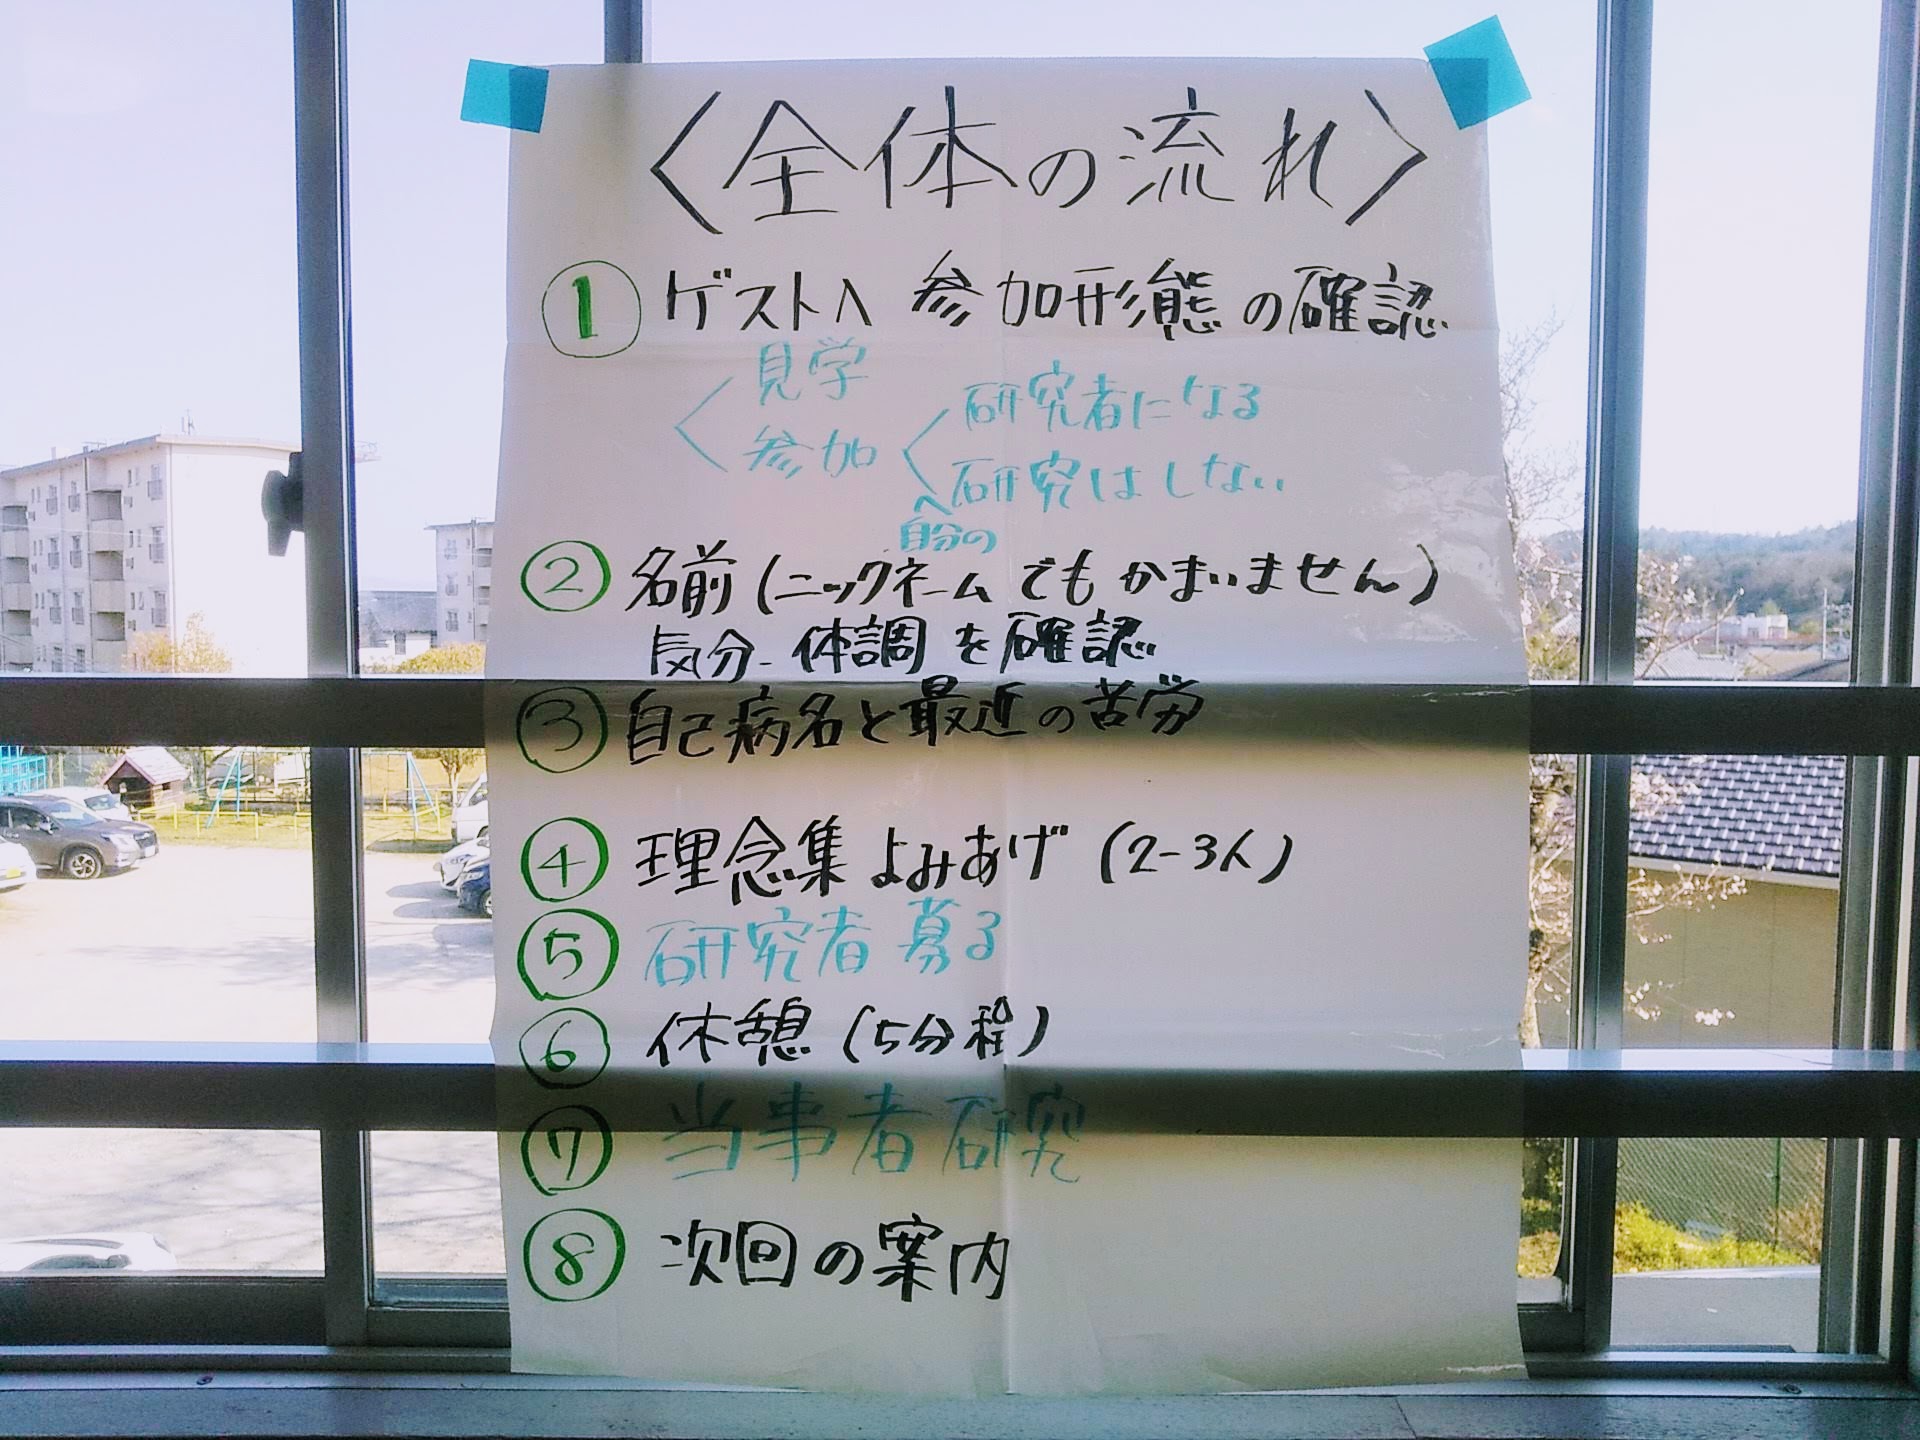 〈全体の流れ〉
① ゲストへ 参加形態の確認
見学
参加
研究者になる
研究はしない
自分の
② 名前(ニックネームでもかまいません)
気分-体調を確認
③ 自己病名と最近の苦労
④ 理念集よみあげ(2-3人)
⑤ 研究者募る
⑥ 休憩(5分程)
⑦ 当事者研究
⑧ 次回の案内